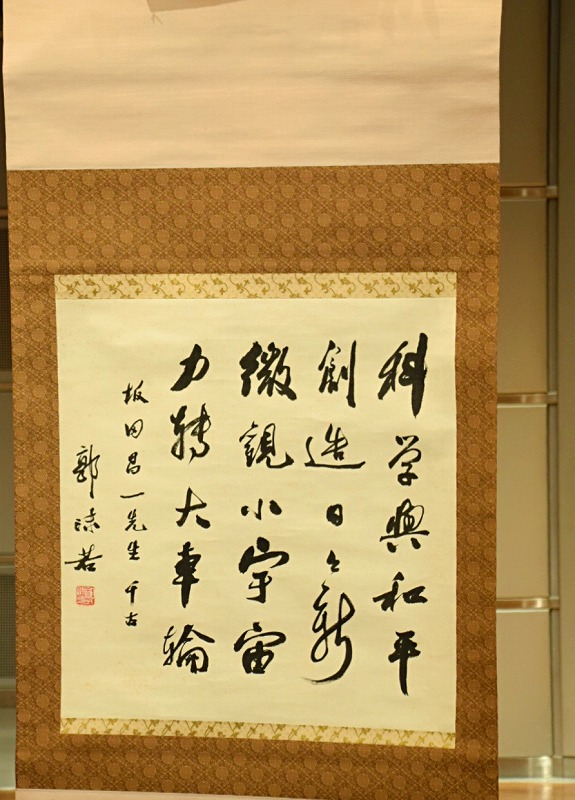 科学與和平
創造日々新
微観小宇宙
力轉大車輪
坂田昌一先生 千古
郭沫若